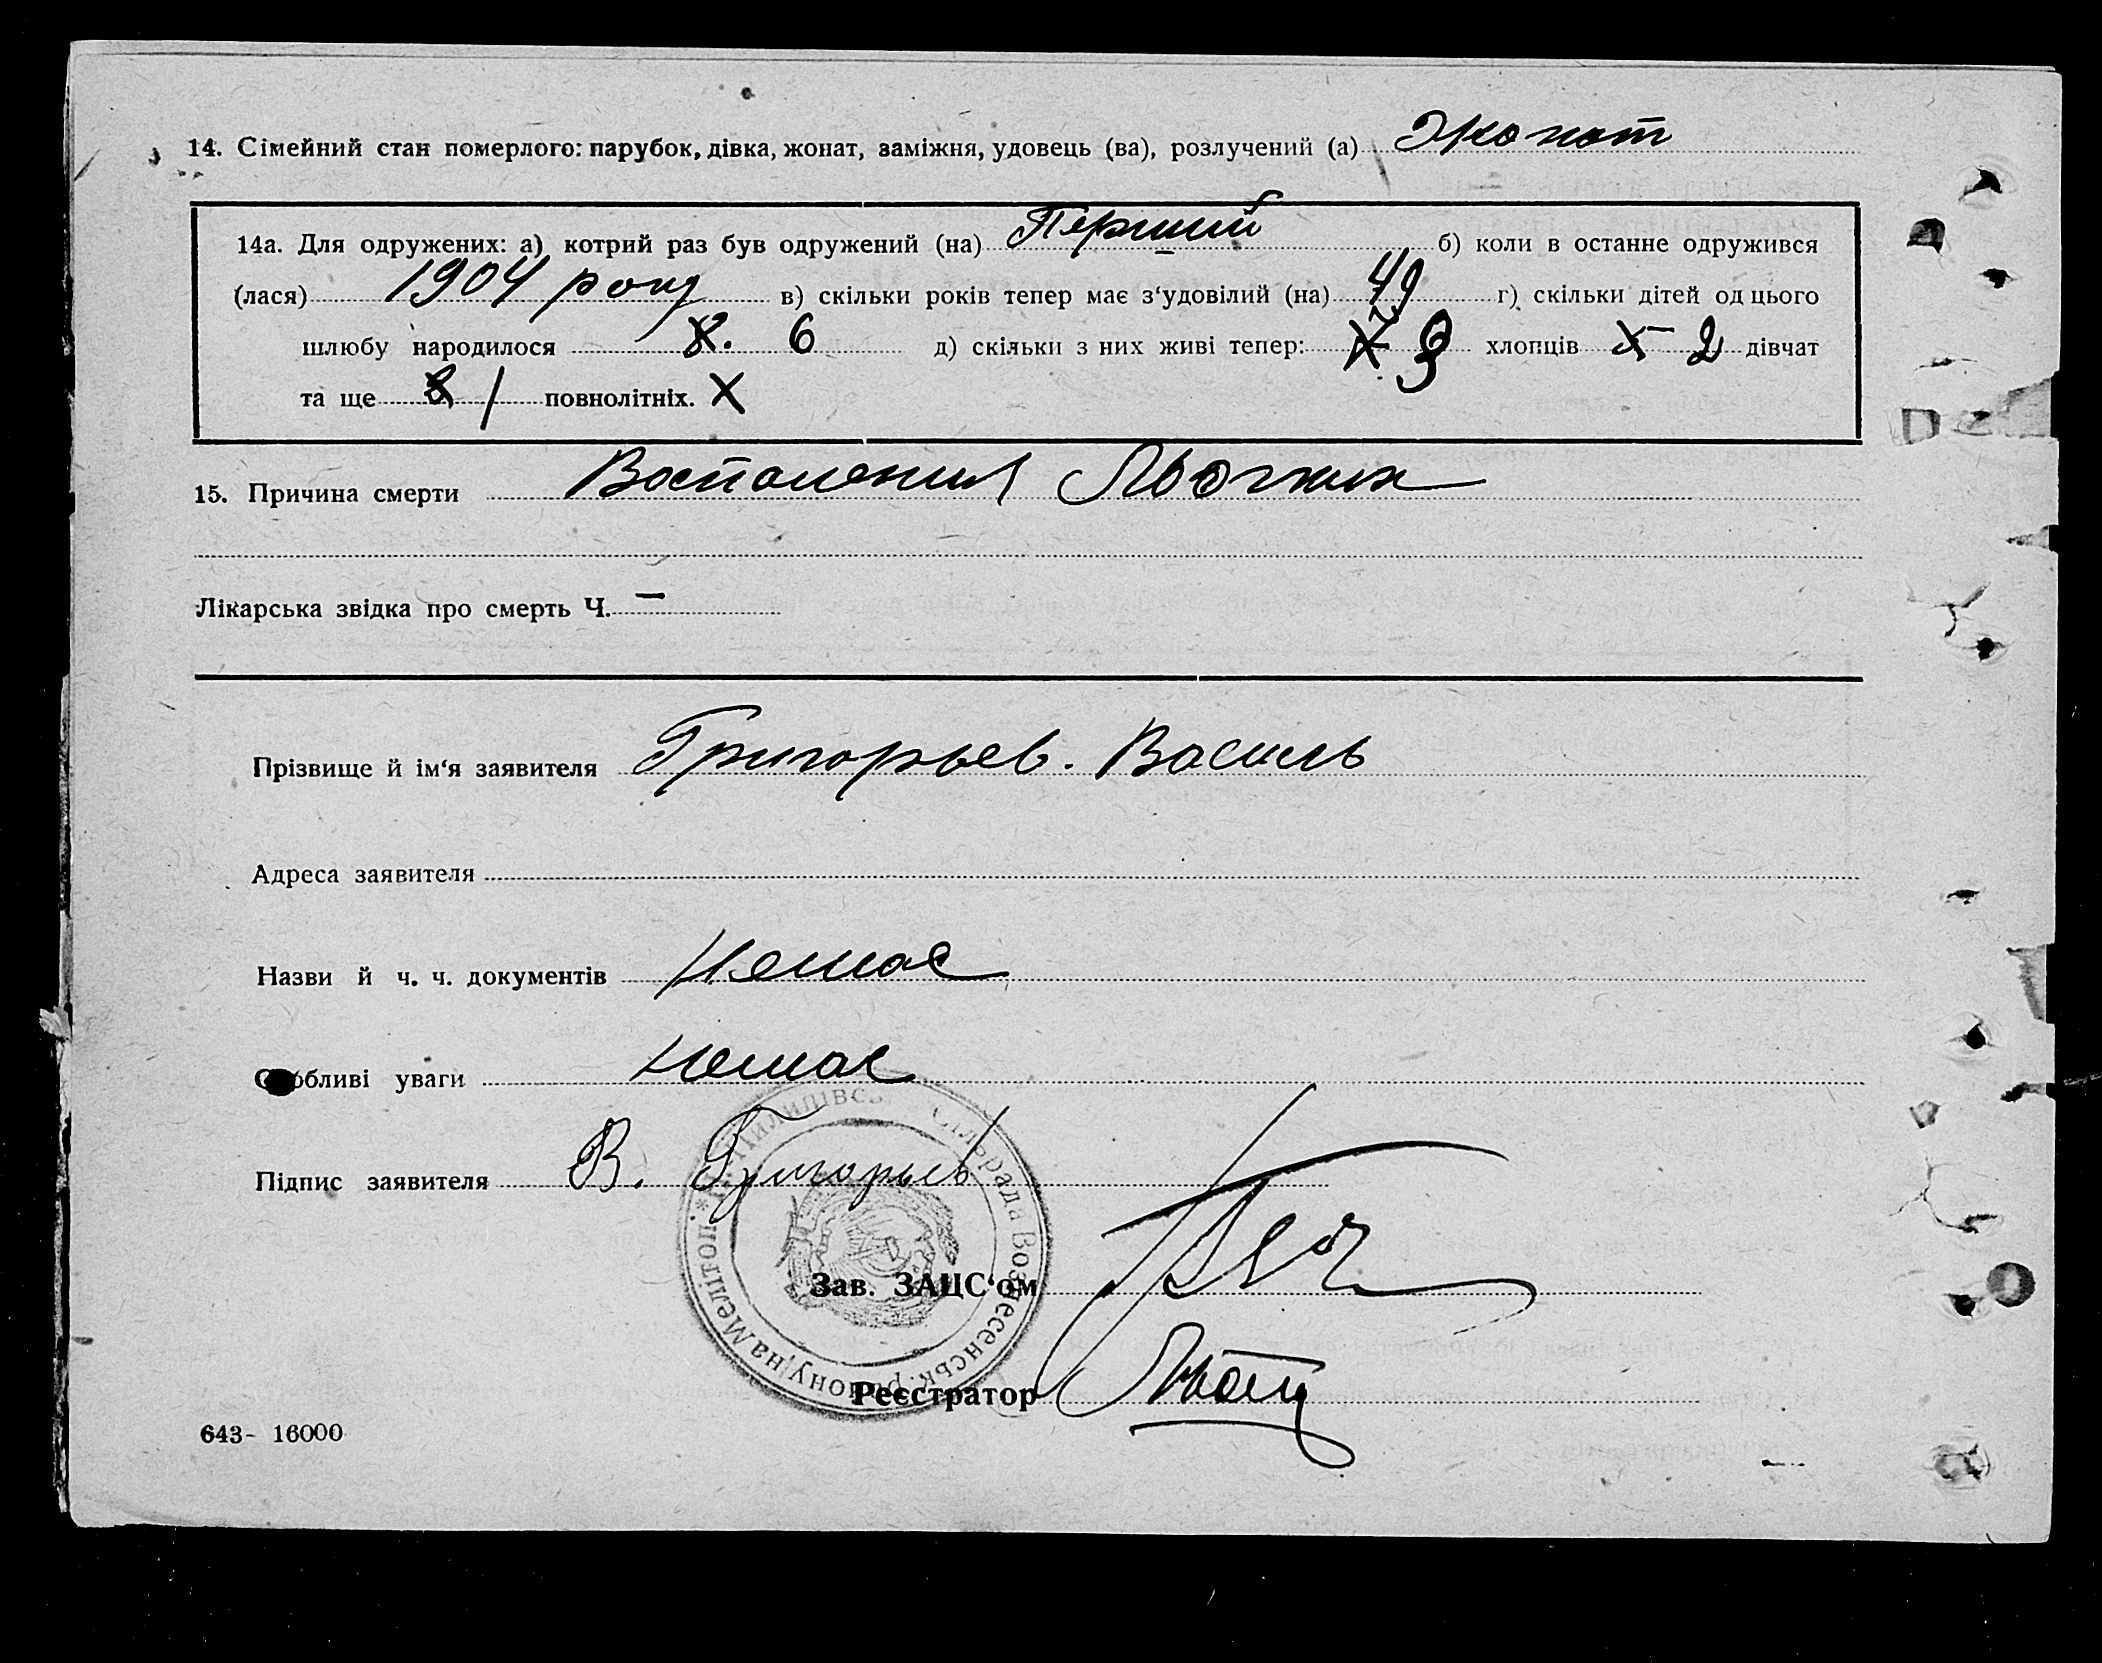 14. Сімейний стан померлого: парубок, дівка, жонат, заміжня, удовець (ва), розлучений (а) Жонат
14а. Для одружених: а) котрий раз був одружений (на) Перший б) коли в останне одружився
(лася) 1904 року в) скільки років тепер має з'удовілий (на) 49 г) скільки дітей од цього
шлюбу народилося 6 д) скільки з них живі тепер: 3 хлопців 2 дівчат
та ще 1 повнолітніх. X
15. Причина смерти Воспаления Льогких
Лікарська звідка про смерть Ч. —
Прізвище й ім'я заявителя Григорьев. Василь
Адреса заявителя
Назви й ч. ч. документів Немає
Особливі уваги немає
Підпис заявителя В. Григорьев
Зав. ЗАЦС'ом
Реєстратор
Сільрада Вознесенськ. району на Мелітоп. *
643- 16000